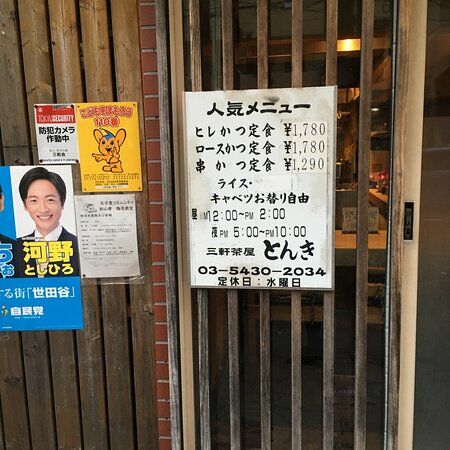 人気メニュー
ヒレかつ定食 ¥1,780
ロースかつ定食 ¥1,780
串かつ定食 ¥1,290
ライス・
キャベツお替り自由
昼AM12:00〜PM2:00
夜PM5:00〜PM10:00
三軒茶屋 とんき
03-5430-2034
定休日:水曜日
TOKYU SECURITY
防犯カメラ
作動中
こどもをまもる
110番
河野
としひろ
する街「世田谷」
自民党